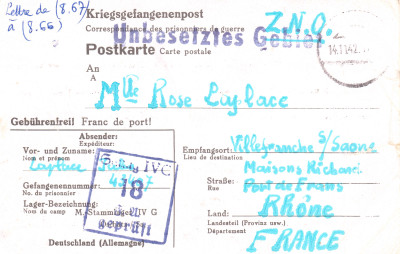 Lettre de (8.67)
à (8.66)
Kriegsgefangenenpost
Correspondance des prisonniers de guerre
Z.N.O.
Unbesetztes Gebiet
Postkarte Carte postale
14.11.42
An
A
Mlle Rose Laplace
Gebührenfrei Franc de port!
Absender:
Expéditeur:
Vor- und Zuname:
Nom et prénom
Laplace
Gefangenennummer:
No. du prisonnier
Lager-Bezeichnung:
Nom du camp M. Stammlager IV G
Deutschland (Allemagne)
Stalag IVG
18
geprüft
Empfangsort: Villefranche s/Saone
Lieu de destination
Maisons Richard
Straße: Pont de Frans
Rue
Land: Rhône
Landesteil (Provinz usw.)
Département
FRANCE